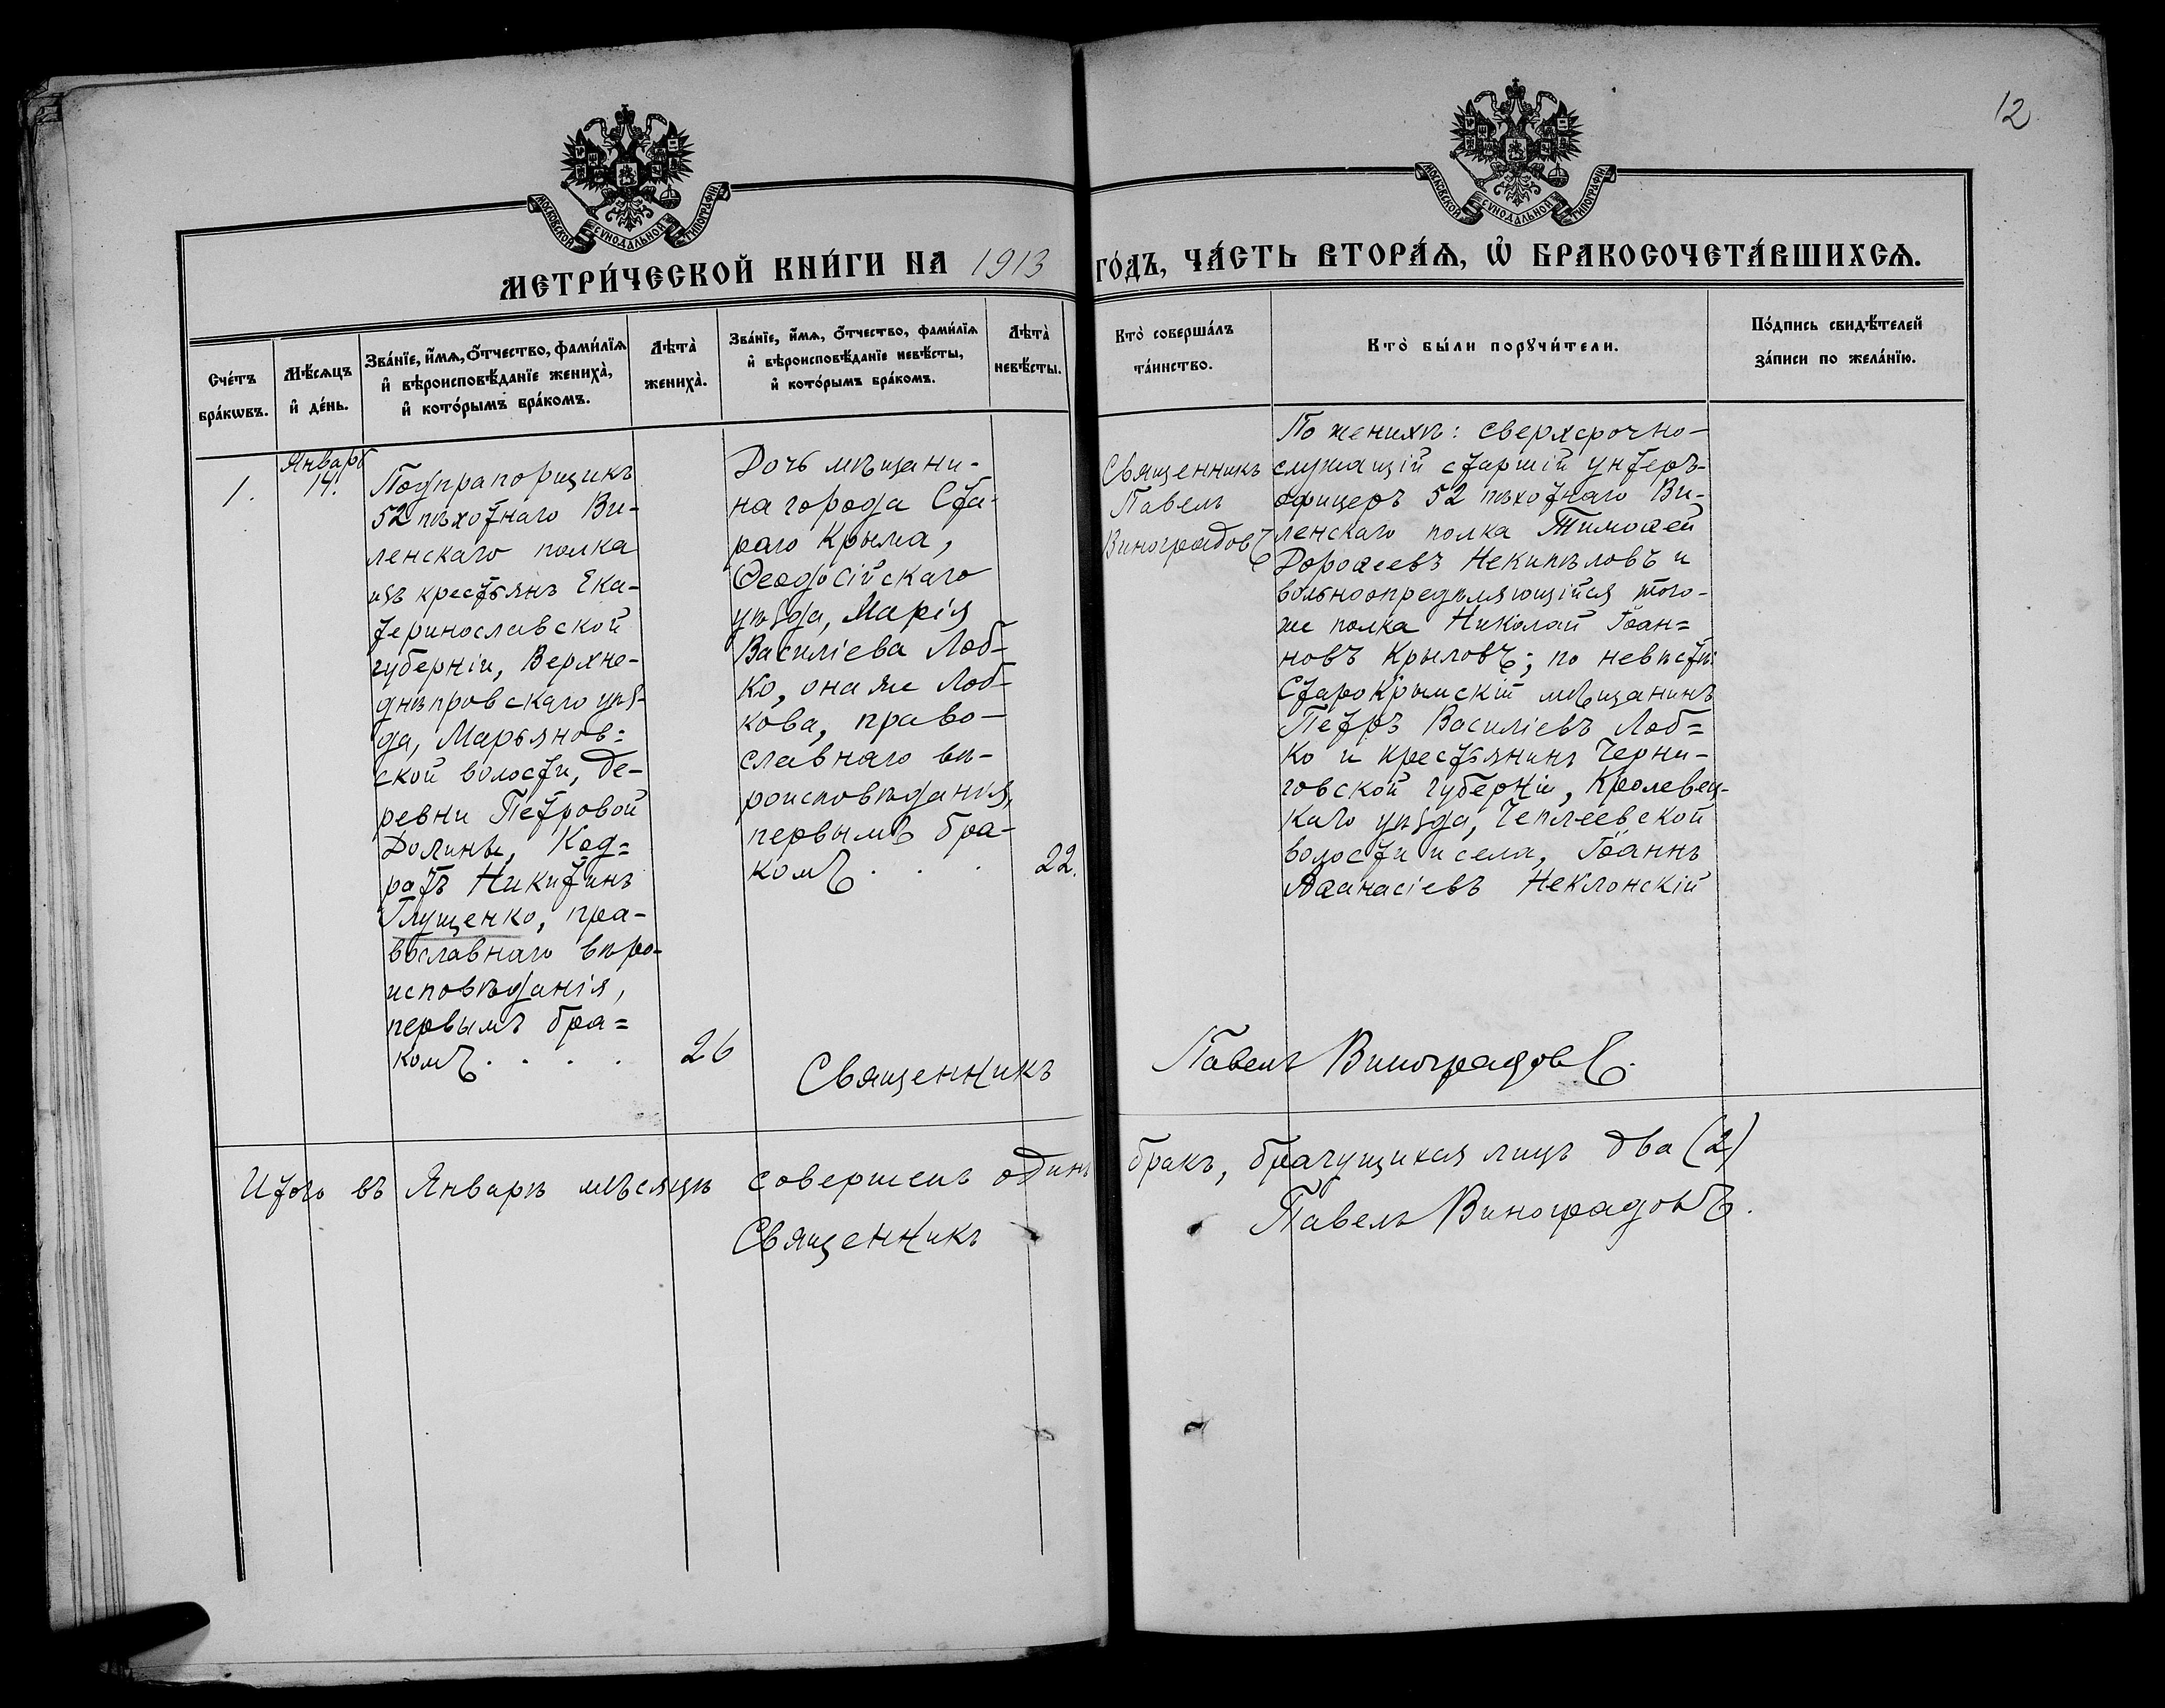 12
МОСКОВСКОЙ СУНОДАЛЬНОЙ ТИПОГРАФІИ
МОСКОВСКОЙ СУНОДАЛЬНОЙ ТИПОГРАФІИ
МЕТРИ́ЧЕСКОЙ КНИ́ГИ НА 1913 ГО́ДЪ, ЧА́СТЬ ВТОРА́Ѧ, Ѡ҆ БРАКОСОЧЕТА́ВШИХСѦ.
Сче́тъ
бра́кѡвъ.
Мѣ́сѧцъ
и҆ де́нь.
Зва́нїе, и҆́мѧ, ѻ҆́тчество, фами́лїѧ
и҆ вѣроисповѣ́данїе жениха̀,
и҆ кото́рымъ бра́комъ.
Лѣта̀
жениха̀.
Зва́нїе, и҆́мѧ, ѻ҆́тчество, фами́лїѧ
и҆ вѣроисповѣ́данїе невѣ́сты,
и҆ кото́рымъ бра́комъ.
Лѣта̀
невѣ́сты.
Кто̀ соверша́лъ
та́инство.
Кто̀ бы́ли порꙋчи́тели.
По́дпись свидѣ́телей
за́писи по жела́нїю.
1.
Январь
14.
Подпрапорщикъ
52 пѣхотнаго Ви-
ленскаго полка
изъ крестьянъ Ека-
теринославской
губерніи, Верхне-
днѣпровскаго уѣз-
да, Марьянов=
ской волости, де-
ревни Петровой
Долины, Код=
ратъ Никитинъ
Глущенко, пра-
вославнаго вѣро-
исповѣданія,
первымъ бра=
комъ . . . .
26
Дочь мѣщани-
на города Ста-
раго Крыма,
Ѳеодосійскаго
уѣзда, Марія
Василіева Лоб-
ко, она же Лоб-
кова, право-
славнаго вѣ-
роисповѣданія,
первымъ бра-
комъ . . .
22.
Священникъ
Павелъ
Виноградовъ
По женихѣ: сверхсрочно-
служащій старшій унтеръ-
офицеръ 52 пѣхотнаго Ви-
ленскаго полка Тимоѳей
Дороѳеевъ Некипѣловъ и
вольноопредѣляющійся того-
же полка Николай Іоан=
новъ Крыловъ; по невѣстѣ:
Старокрымскій мѣщанинъ
Петръ Василіевъ Лоб=
ко и крестьянинъ Черни-
говской губерніи, Кролевец-
каго уѣзда, Чеплеевской
волости и села, Іоаннъ
Аѳанасіевъ Неклонскій
Священникъ Павелъ Виноградовъ.
Итого въ Январѣ мѣсяцѣ совершенъ одинъ бракъ, брачущихся лицъ два (2)
Священникъ Павелъ Виноградовъ.